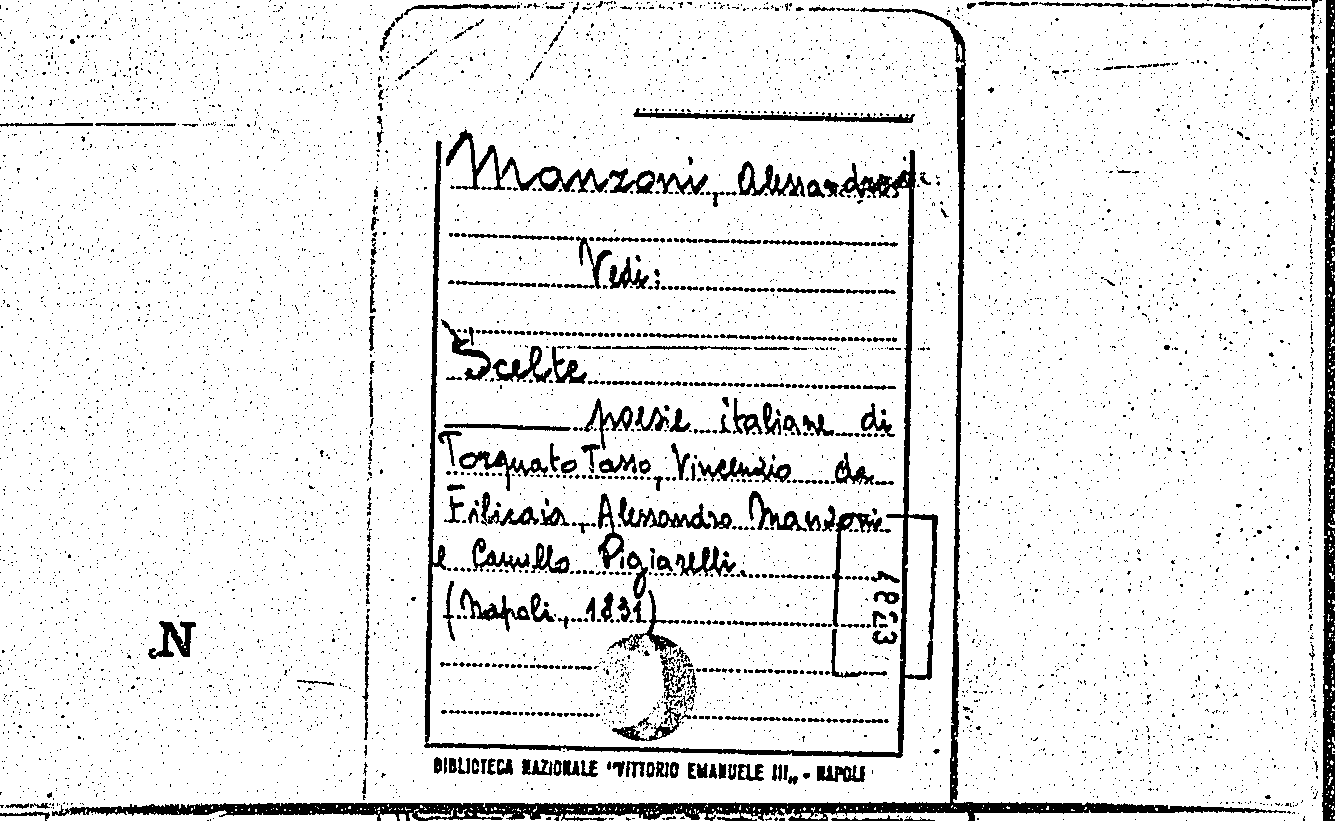 Manzoni, Alessandro
Vedi:
Scelte
poesie italiane di
Torquato Tasso, Vincenzio da
Filicaia, Alessandro Manzoni
e Camillo Pigiarelli.
(Napoli, 1831)
N
BIBLIOTECA NAZIONALE "VITTORIO EMANUELE III„ - NAPOLI